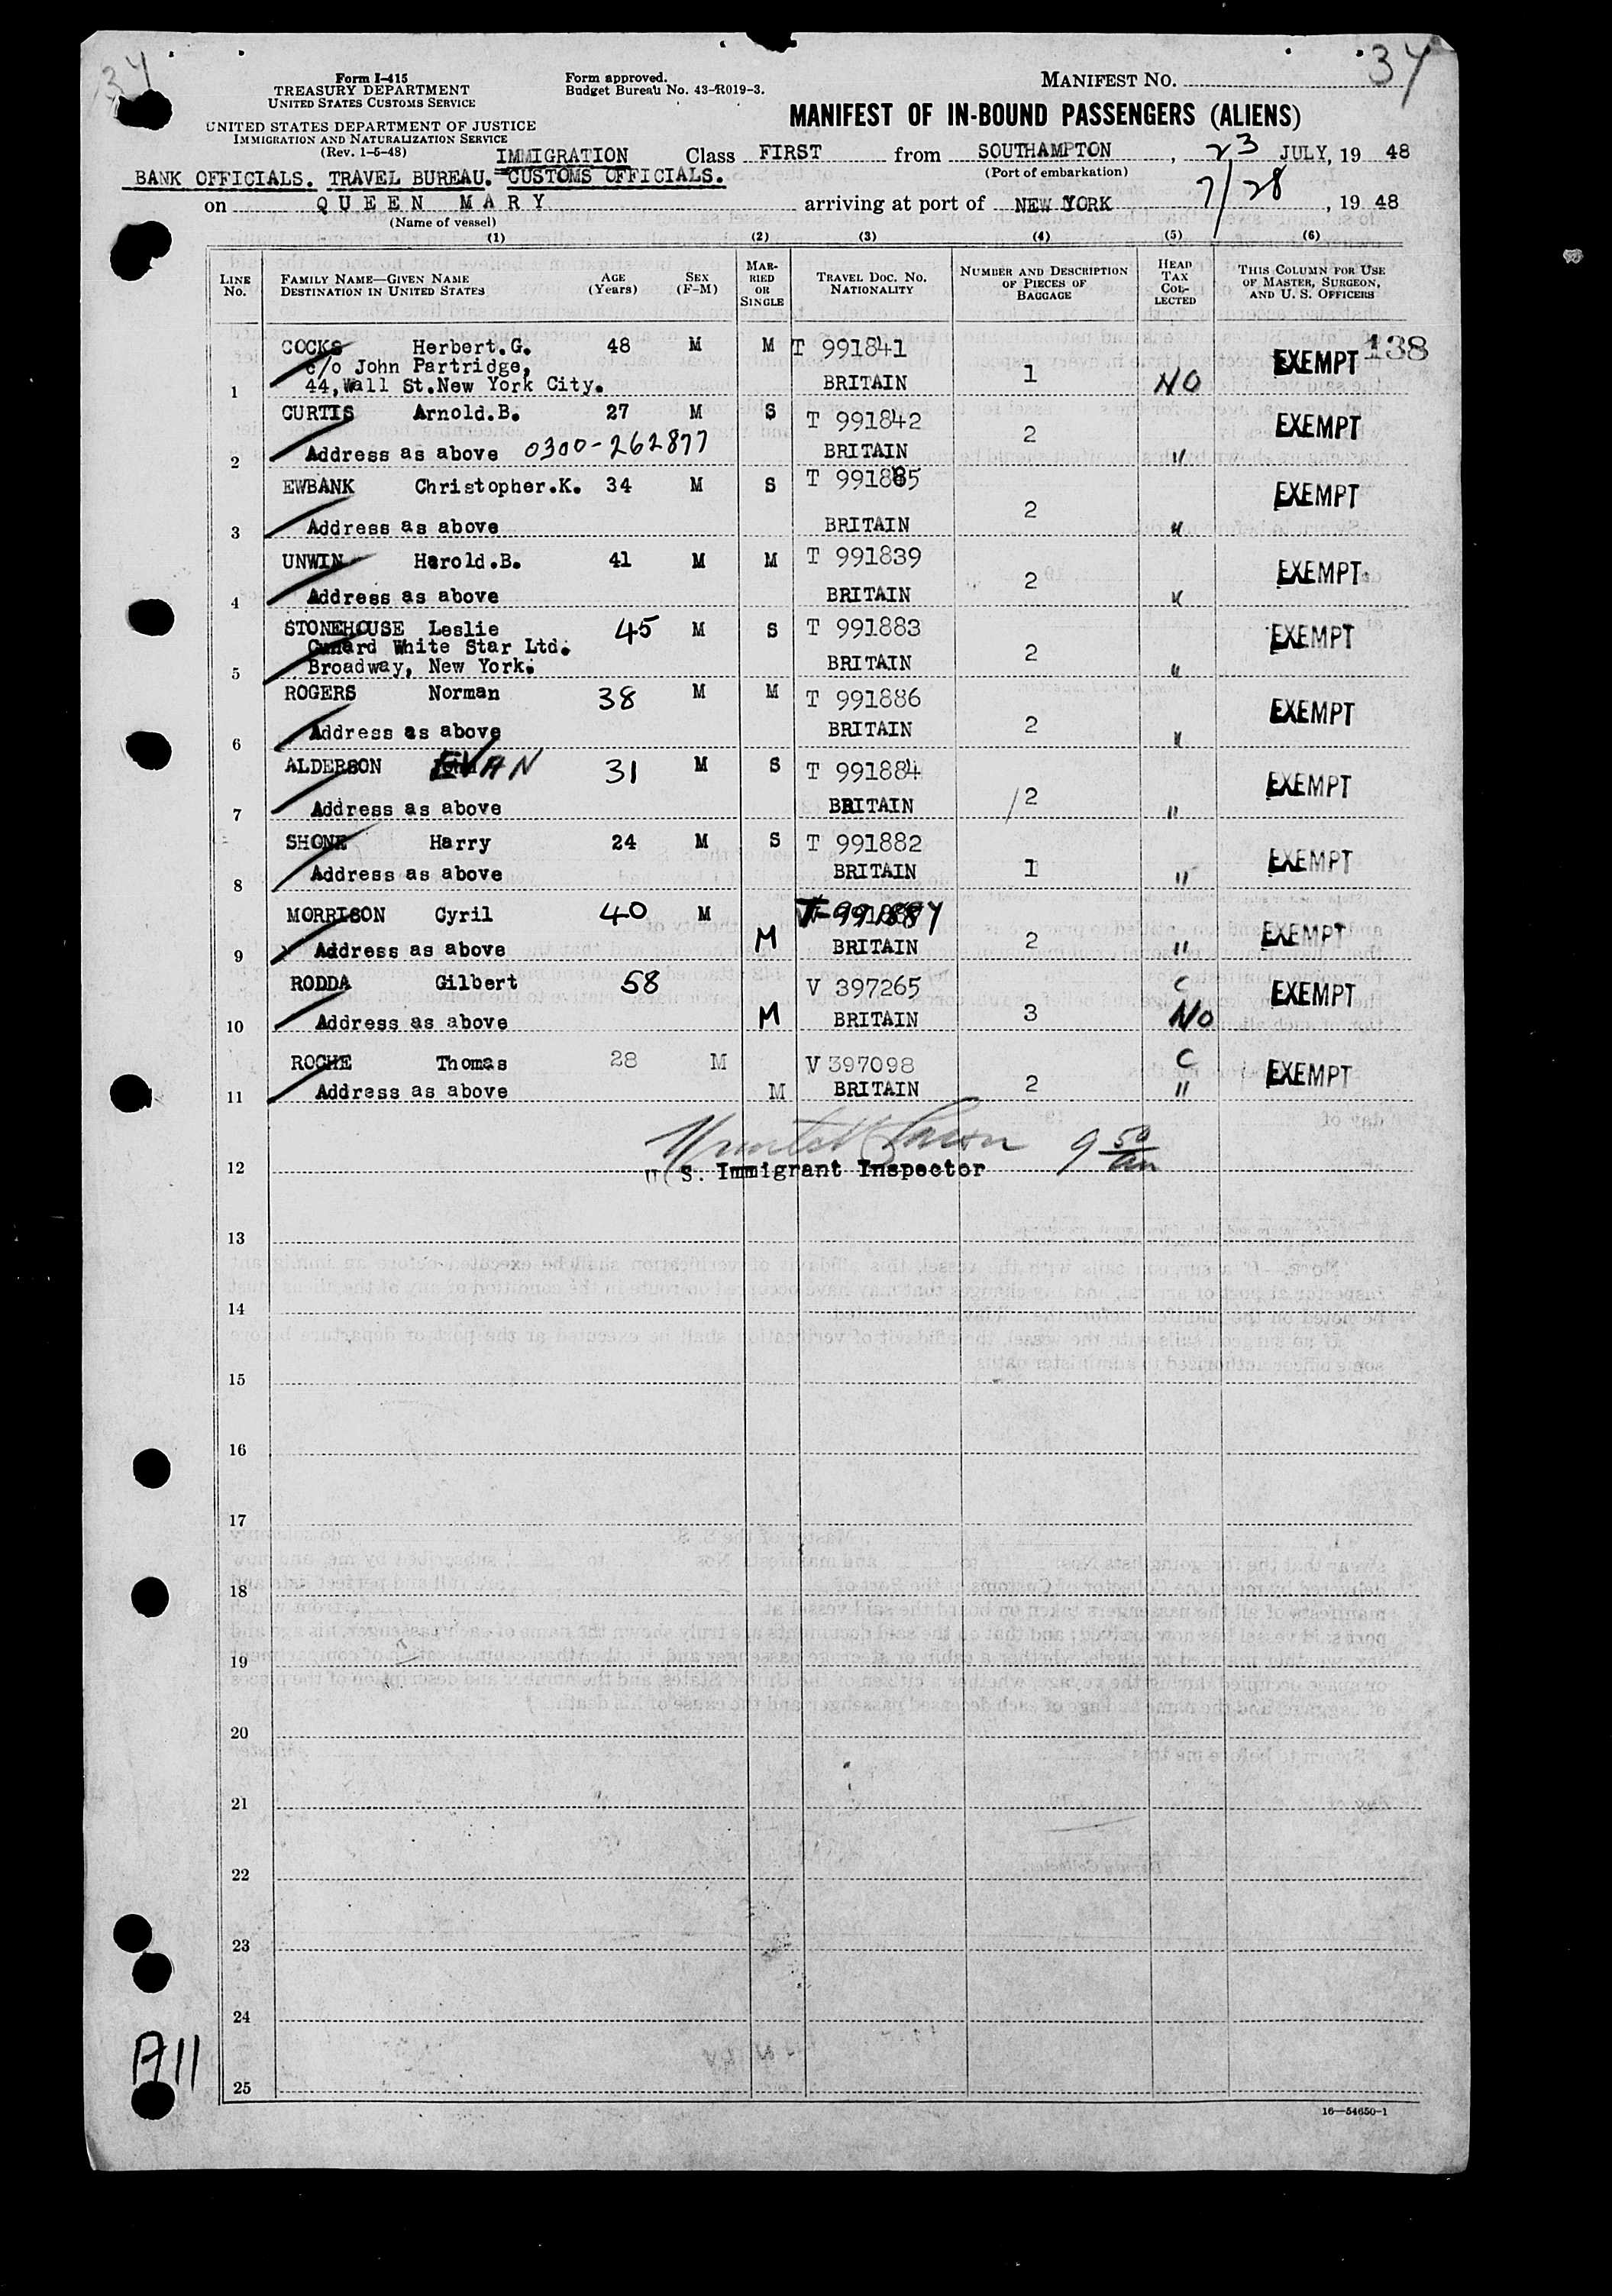 34
34
Form I-415
TREASURY DEPARTMENT
UNITED STATES CUSTOMS SERVICE
Form approved.
Budget Bureau No. 43-R019-3.
MANIFEST NO.
MANIFEST OF IN-BOUND PASSENGERS (ALIENS)
UNITED STATES DEPARTMENT OF JUSTICE
IMMIGRATION AND NATURALIZATION SERVICE
(Rev. 1-5-48)
IMMIGRATION Class FIRST from SOUTHAMPTON, 23 JULY, 19 48
(Port of embarkation)
BANK OFFICIALS. TRAVEL BUREAU. CUSTOMS OFFICIALS.
on QUEEN MARY arriving at port of NEW YORK 7/28, 19 48
(Name of vessel)
(1) (2) (3) (4) (5) (6)
LINE No. FAMILY NAME—GIVEN NAME DESTINATION IN UNITED STATES AGE (Years) SEX (F-M) MARRIED OR SINGLE TRAVEL DOC. NO. NATIONALITY NUMBER AND DESCRIPTION OF PIECES OF BAGGAGE HEAD TAX COLLECTED THIS COLUMN FOR USE OF MASTER, SURGEON, AND U. S. OFFICERS
COCKS Herbert.G. 48 M M T 991841 EXEMPT 138
c/o John Partridge,
1 44,Wall St.New York City. BRITAIN 1 NO
CURTIS Arnold.B. 27 M S T 991842 2 EXEMPT
2 Address as above 0300-262877 BRITAIN "
EWBANK Christopher.K. 34 M S T 991885 2 EXEMPT
3 Address as above BRITAIN "
UNWIN Harold.B. 41 M M T 991839 2 EXEMPT
4 Address as above BRITAIN "
STONEHOUSE Leslie 45 M S T 991883 EXEMPT
Cunard White Star Ltd.
5 Broadway, New York. BRITAIN 2 "
ROGERS Norman 38 M M T 991886 EXEMPT
6 Address as above BRITAIN 2 "
ALDERSON EVAN 31 M S T 991884 EXEMPT
7 Address as above BRITAIN 2 "
SHONE Harry 24 M S T 991882 EXEMPT
8 Address as above BRITAIN 1 "
MORRISON Cyril 40 M T-991887 EXEMPT
9 Address as above M BRITAIN 2 "
RODDA Gilbert 58 V 397265 C EXEMPT
10 Address as above M BRITAIN 3 No
ROCHE Thomas 28 M V 397098 C EXEMPT
11 Address as above M BRITAIN 2 "
9 50 am
12 U S. Immigrant Inspector
13
14
15
16
17
18
19
20
21
22
23
24
A11
25
16—54650-1